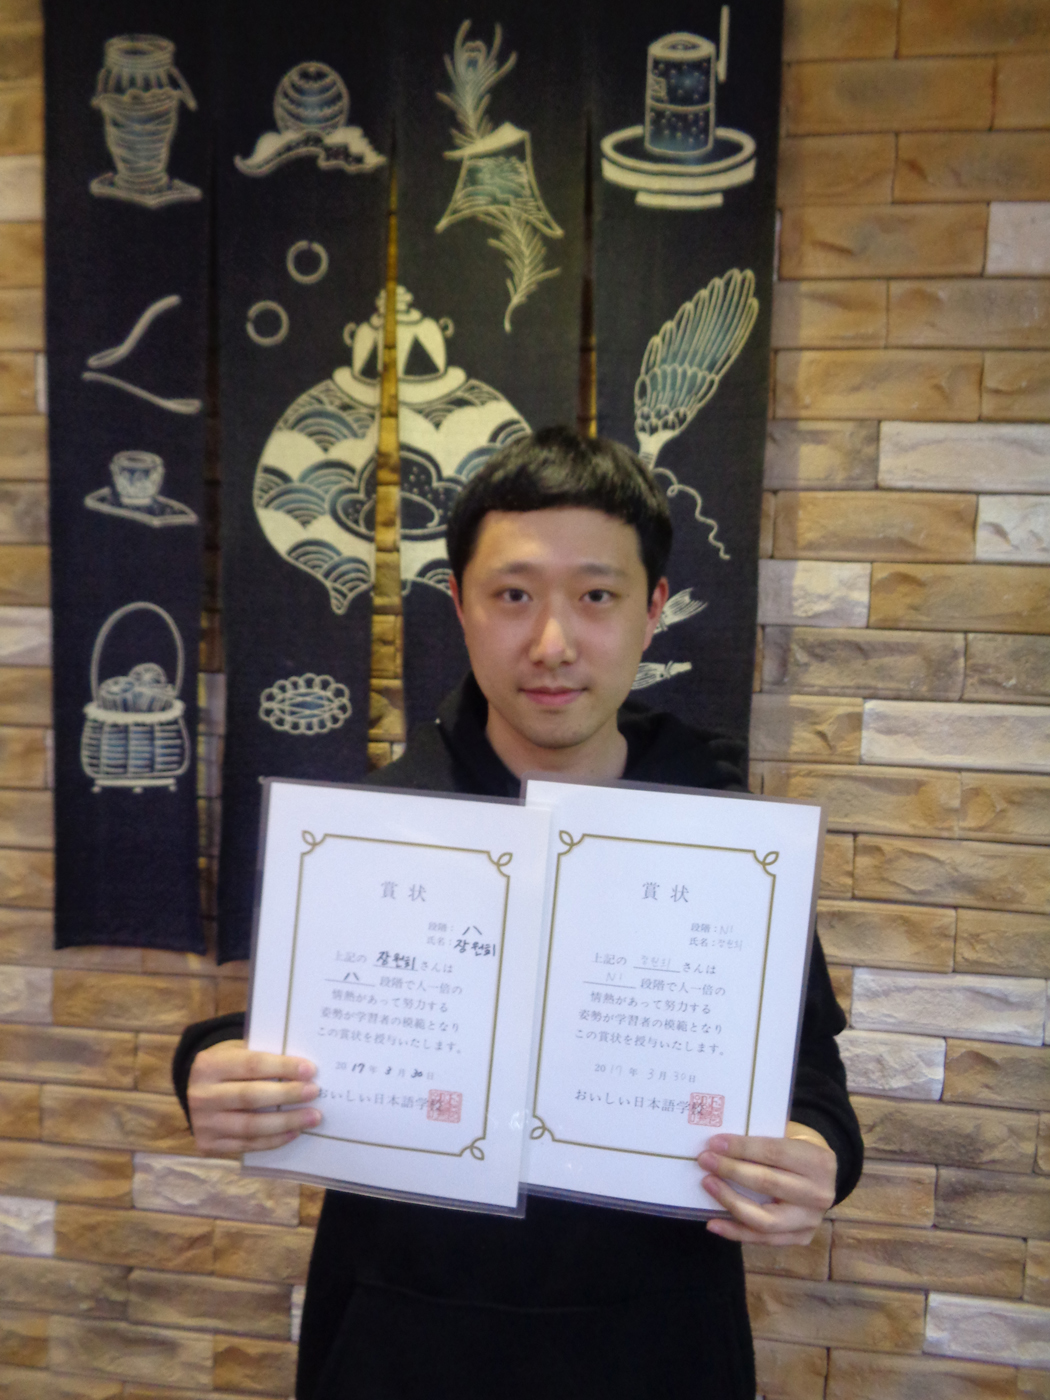 賞状
段階：八
氏名：장원희
上記の 장원희 さんは
八 段階で人一倍の
情熱があって努力する
姿勢が学習者の模範となり
この賞状を授与いたします。
2017年 3月 30日
おいしい日本語学校
賞状
段階：N1
氏名：장원희
上記の 장원희 さんは
N1 段階で人一倍の
情熱があって努力する
姿勢が学習者の模範となり
この賞状を授与いたします。
2017年 3月 30日
おいしい日本語学校